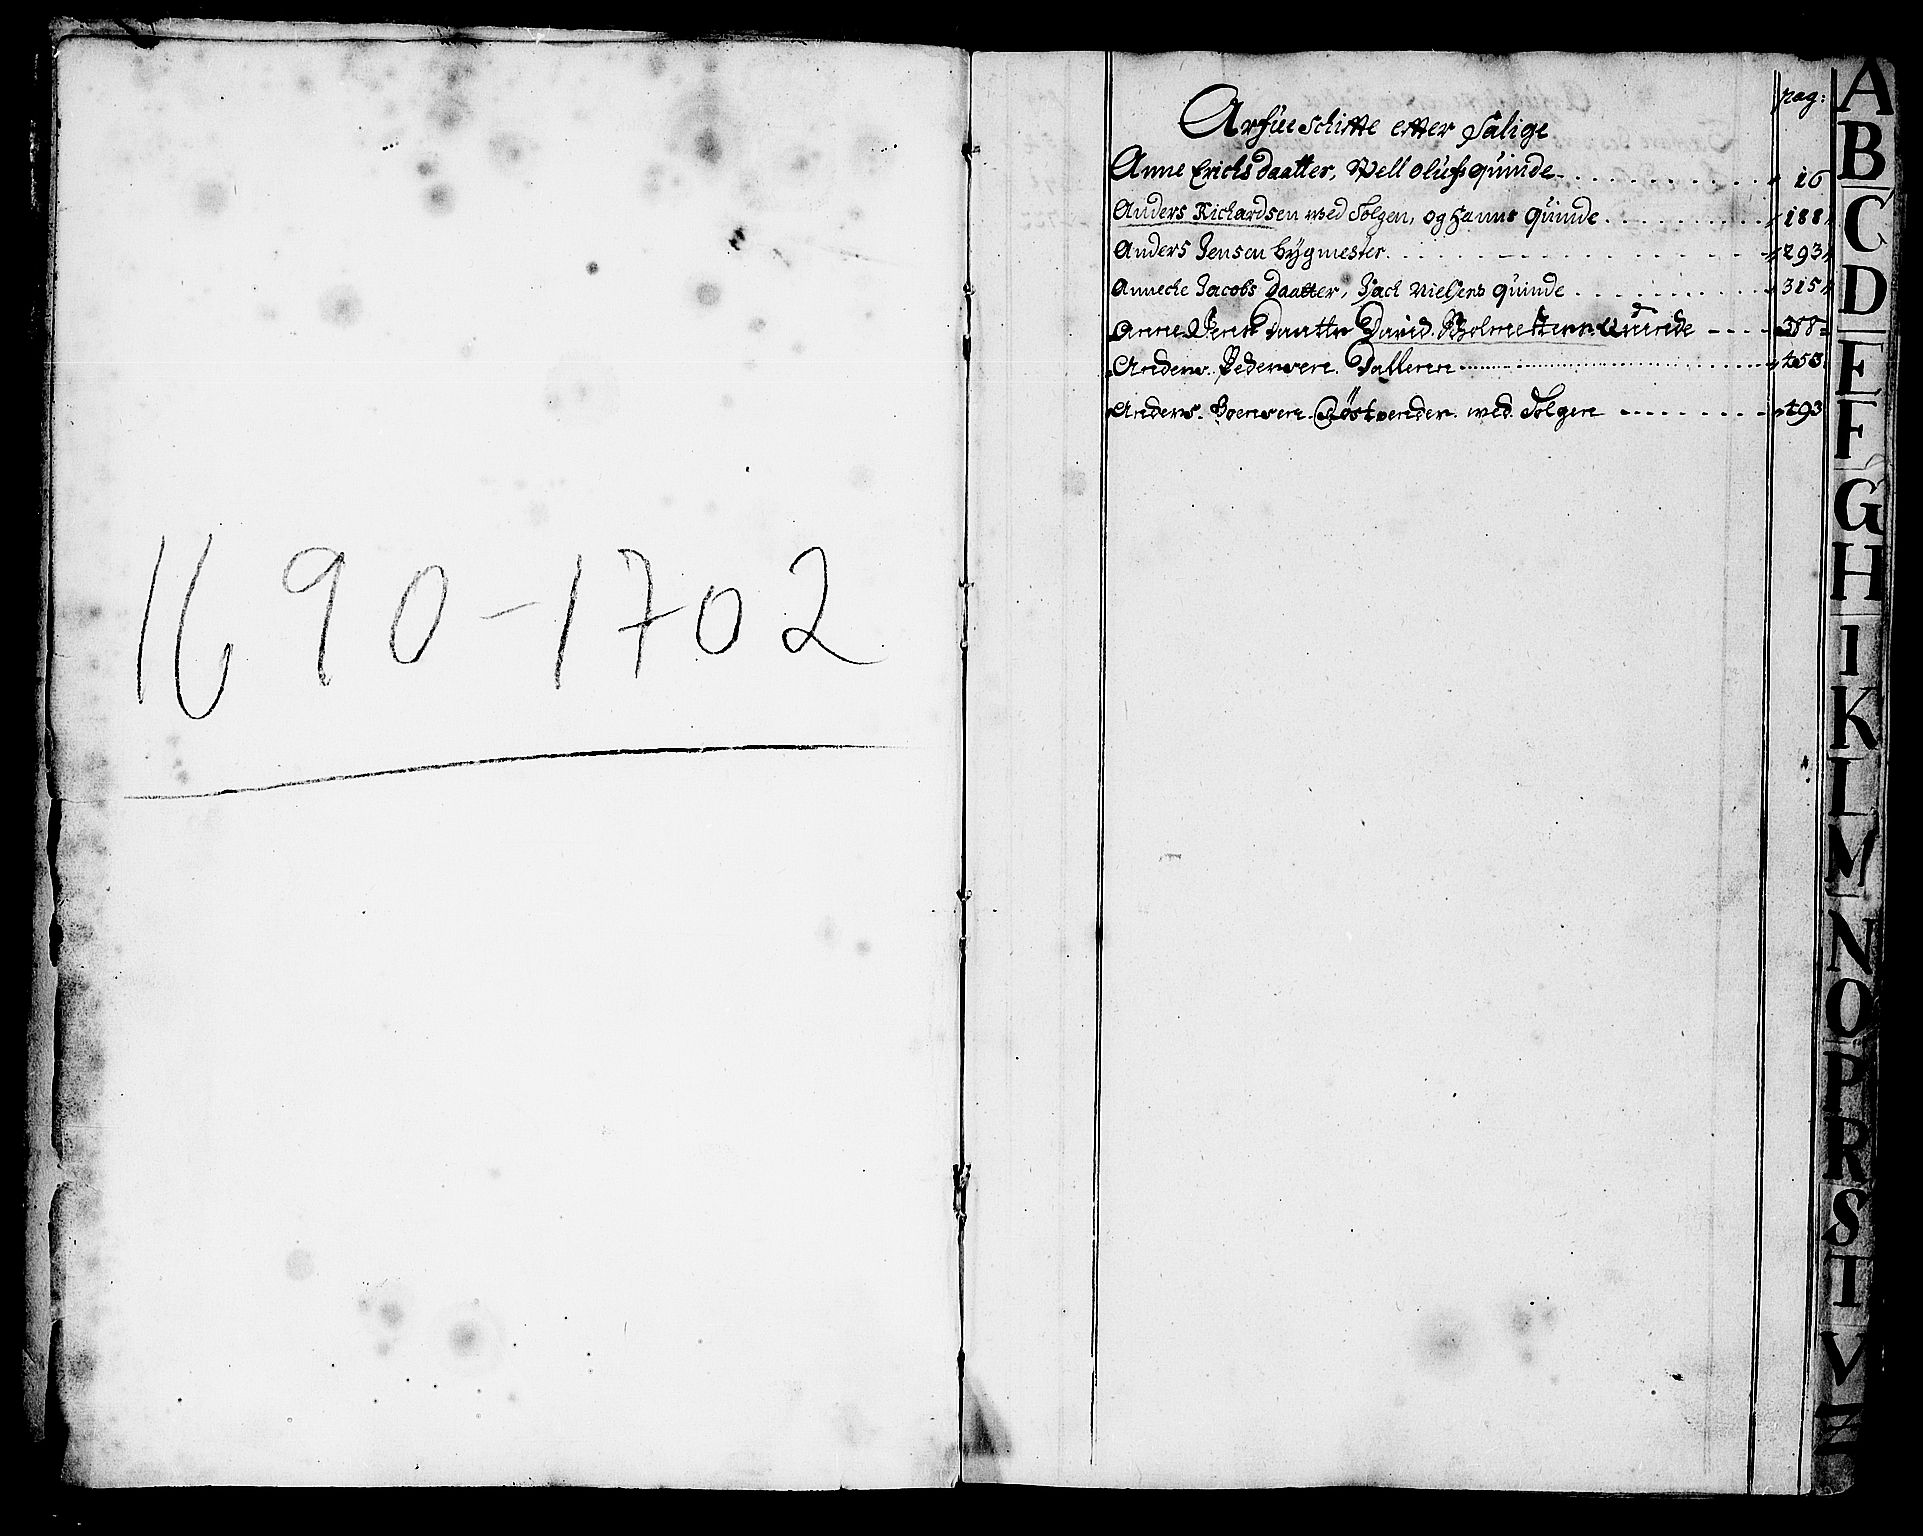 1690-1702
pag:
Arfueschiftte efter Salige
Anne Erichs daatter, Well olufs quinde 16
Anders Richardsen med Solgen, og hanns quinde 188
Anders Jensen bygmester 293
Annecke Jacobs daatter, Jack Nielsens quinde 315
Anne Daatter David Quinde 358
Anders Pedersen 453
Anders med Solgen 493
A
B
C
D
E
F
G
H
I
K
L
M
N
O
P
R
S
T
V